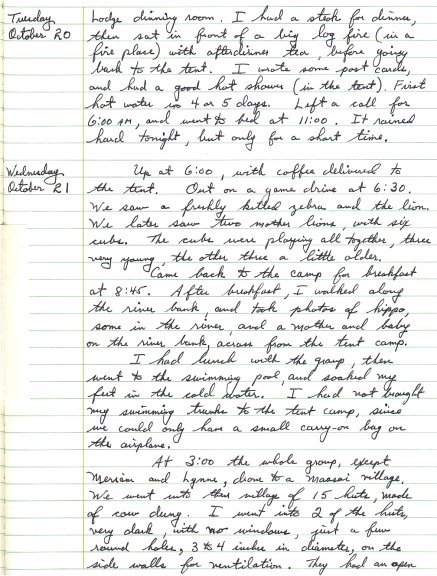 Tuesday
October 20
Lodge dinning room. I had a steak for dinner,
then sat in front of a big log fire (in a
fire place) with afterdinner tea, before going
back to the tent. I wrote some post cards,
and had a good hot shower (in the tent). First
hot water in 4 or 5 days. Left a call for
6:00 AM, and went to bed at 11:00. It rained
hard tonight, but only for a short time.
Wednesday
October 21
Up at 6:00, with coffee delivered to
the tent. Out on a game drive at 6:30.
We saw a freshly killed zebra and the lion.
We later saw two mother lions, with six
cubs. The cubs were playing all together, three
very young, the other three a little older.
Came back to the camp for breakfast
at 8:45. After breakfast, I walked along
the river bank, and took photos of hippo,
some in the river, and a mother and baby
on the river bank, across from the tent camp.
I had lunch with the group, then
went to the swimming pool, and soaked my
feet in the cold water. I had not brought
my swimming trunks to the tent camp, since
we could only have a small carry-on bag on
the airplane.
At 3:00 the whole group, except
Meriam and Lynne, drove to a Maasai village.
We went into this village of 15 huts, made
of cow dung. I went into 2 of the huts,
very dark, with no windows, just a few
round holes, 3 to 4 inches in diameter, on the
side walls for ventilation. They had an open